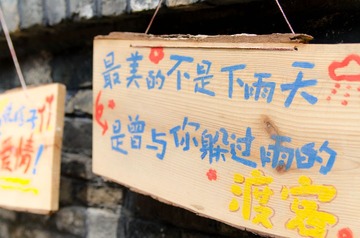 最美的不是下雨天
是曾与你躲过雨的
渡客
爱情!